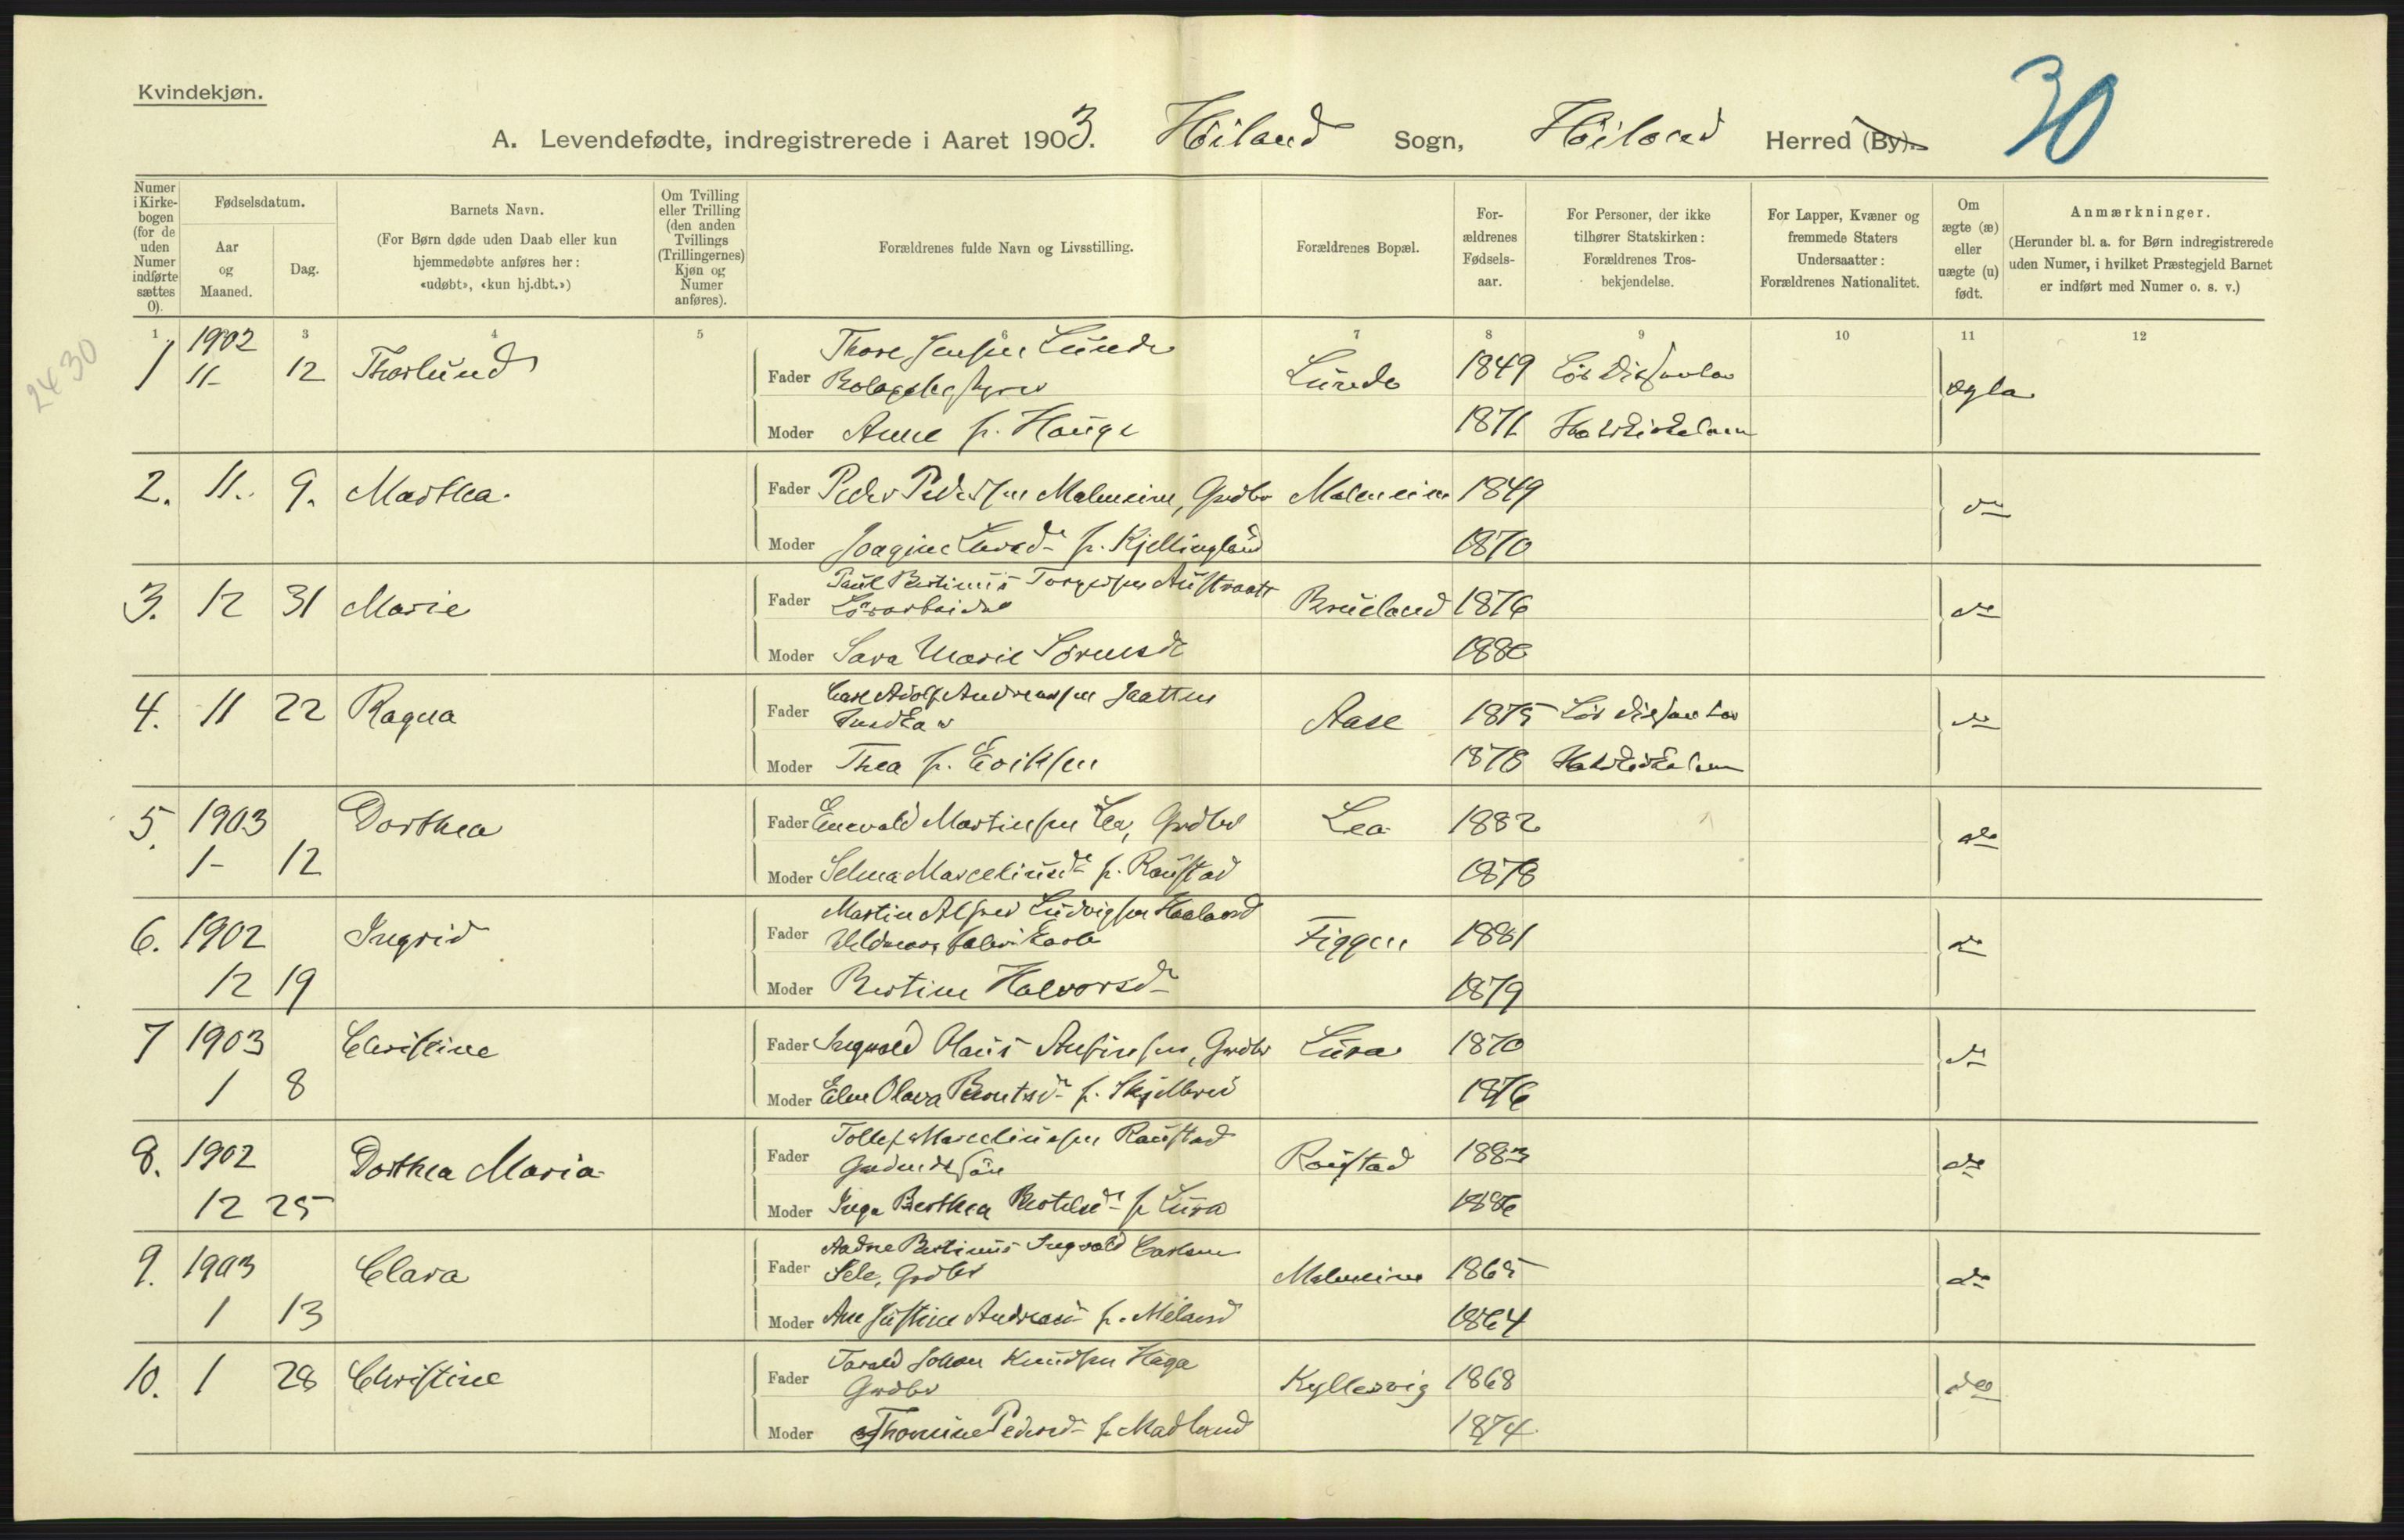 Kvindekjøn.
30
A. Levendefødte, indregistrerede i Aaret 1903. Høiland Sogn, Høiland Herred (By).
Numer i Kirkebogen (for de uden Numer indførte sættes 0).
Fødselsdatum.
Aar og Maaned.
Dag.
Barnets Navn.
(For Børn døde uden Daab eller kun
hjemmedøbte anføres her:
«udøbt», «kun hj.dbt.»)
Om Tvilling
eller Trilling
(den anden
Tvillings
(Trillingernes)
Kjøn og
Numer
anføres).
Forældrenes fulde Navn og Livsstilling.
Forældrenes Bopæl.
For-
ældrenes
Fødsels-
aar.
For Personer, der ikke
tilhører Statskirken:
Forældrenes Tros-
bekjendelse.
For Lapper, Kvæner og
fremmede Staters
Undersaatter:
Forældrenes Nationalitet.
Om
ægte (æ)
eller
uægte (u)
født.
Anmærkninger.
(Herunder bl. a. for Børn indregistrerede
uden Numer, i hvilket Præstegjeld Barnet
er indført med Numer o. s. v.)
1 3 4 5 6 7 8 9 10 11 12
2430
1902
1 11 12 Thorlund
Thore Jensen Lunde
Fader Lunde 1849 ægte
Moder Anne f. Hauge 1871
2. 11. 9. Marthea.
Fader Peder Pedersen Malmeim, Grdbr Malmeim 1849 do
Moder Joagine Larsd. f. Kjellingland 1870
3. 12 31 Marie
Paul Bertinus Torgersen Austraatt
Fader Løsarbeider Brueland 1876 do
Moder Sara Marie Sørensd. 1880
4. 11 22 Ragna
Carl Adolf Andreassen Jaatten
Fader Aase 1875 do
Moder Thea f. Eriksen 1878
5. 1903 Dorthea
1 12
Fader Enevald Martinsen Lea, Grdbr Lea 1882 do
Moder Selma Marceliusd. f. Raustad 1878
6. 1902 Ingrid
12 19
Martin Alfred Ludvigsen Haaland
Fader Figgen 1881 do
Moder Bertine Halvorsd. 1879
7 1903 Christine
1 8
Fader Ingvald Olaus Ansinsen, Grdbr Lura 1870 do
Moder Elen Olava Berntsd. f. Skjelbred 1876
8. 1902 Dorthea Maria
12 25
Tollef Marceliussen Raustad
Fader Raustad 1883 do
Moder Inga Berthea Bertelsd. f. Lura 1886
9. 1903 Clara
1 13
Aadne Bertinus Ingvald Carlsen
Fader Sele, Grdbr Malmeim 1865 do
Moder Ane Justine Andreasd. f. Meland 1864
10. 1 28 Christine
Tarald Johan Knudsen Haga
Fader Grdbr Kyllesvig 1868 do
Moder Thomine Pedersd. f. Madland 1874